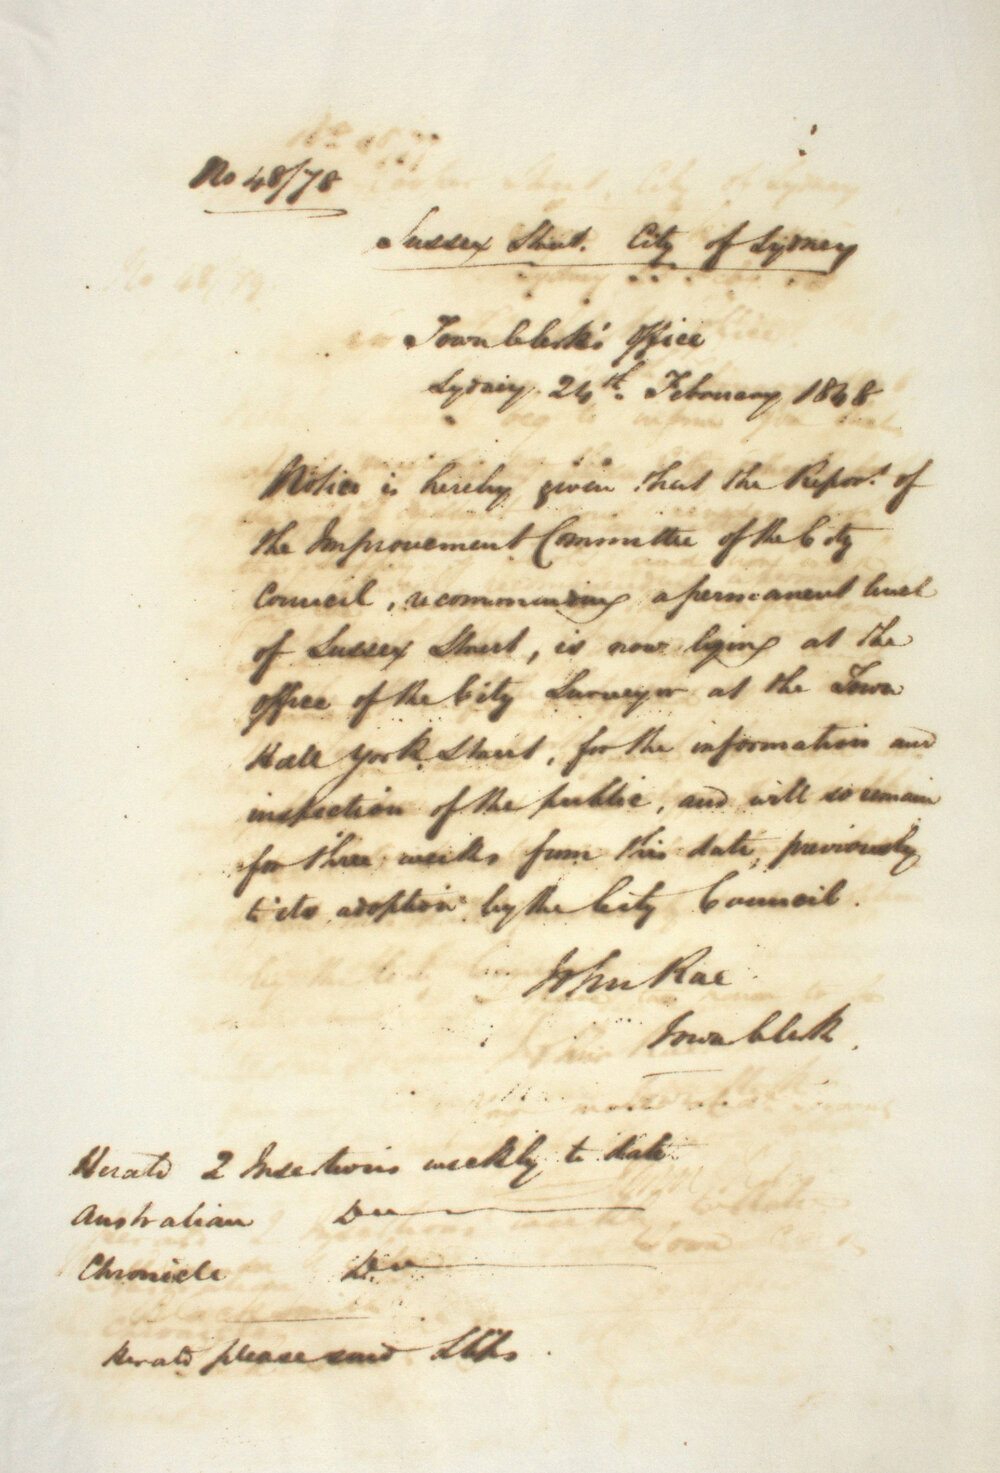 No 48/78
Sussex Street. City of Sydney
Town Clerk's Office
Sydney 24th. February 1848
Notice is hereby given that the Report of
the Improvement Committee of the City
Council, recommending a permanent level
of Sussex Street, is now lying at the
office of the City Surveyor at the Town
Hall York Street, for the information and
inspection of the public, and will so remain
for three weeks from this date, previously
to its adoption by the City Council.
John Rae
Town Clerk.
Herald 2 Insertions weekly to date
Australian Do
Chronicle Do
Herald please send Slips.